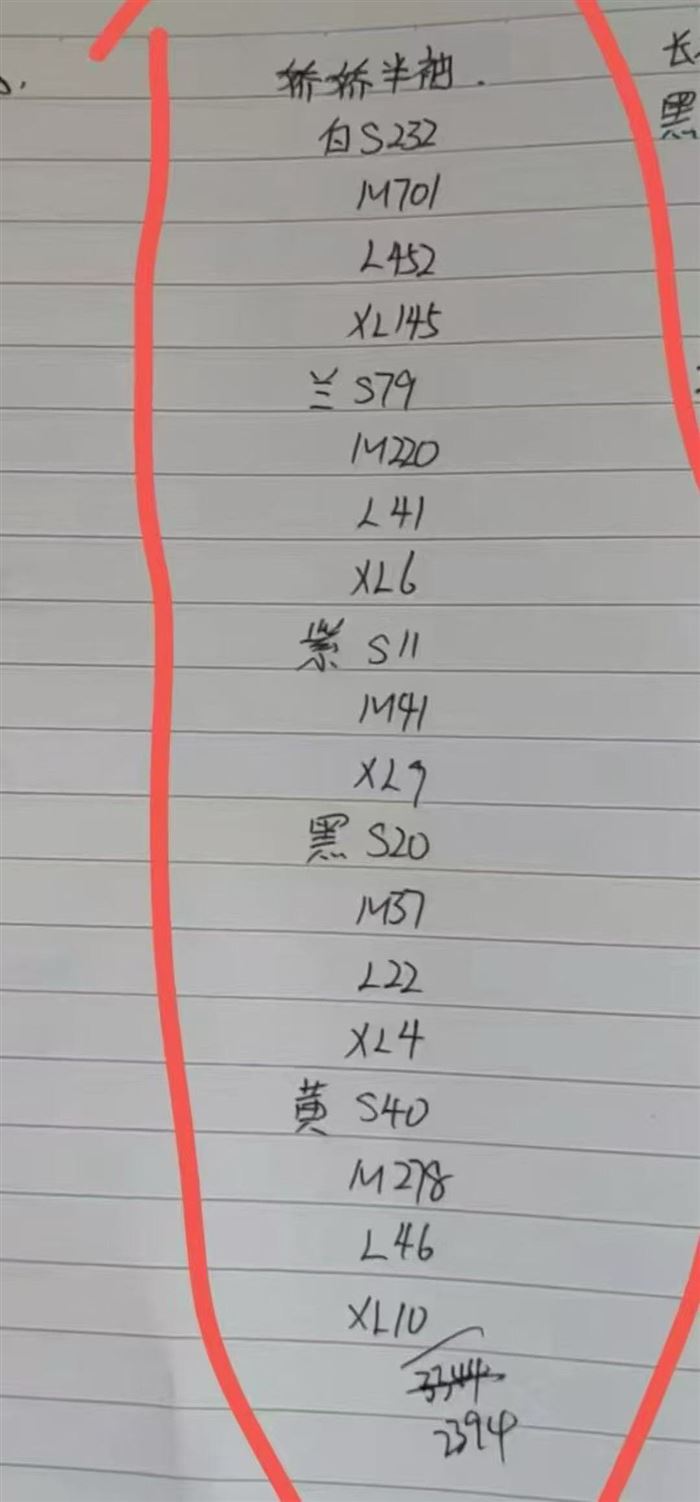 娇娇半袖.
白S232
M701
L452
XL145
兰 S79
M220
L41
XL6
紫 S11
M41
XL9
黑 S20
M37
L22
XL4
黄 S40
M278
L46
XL10
3344
2394
长
黑